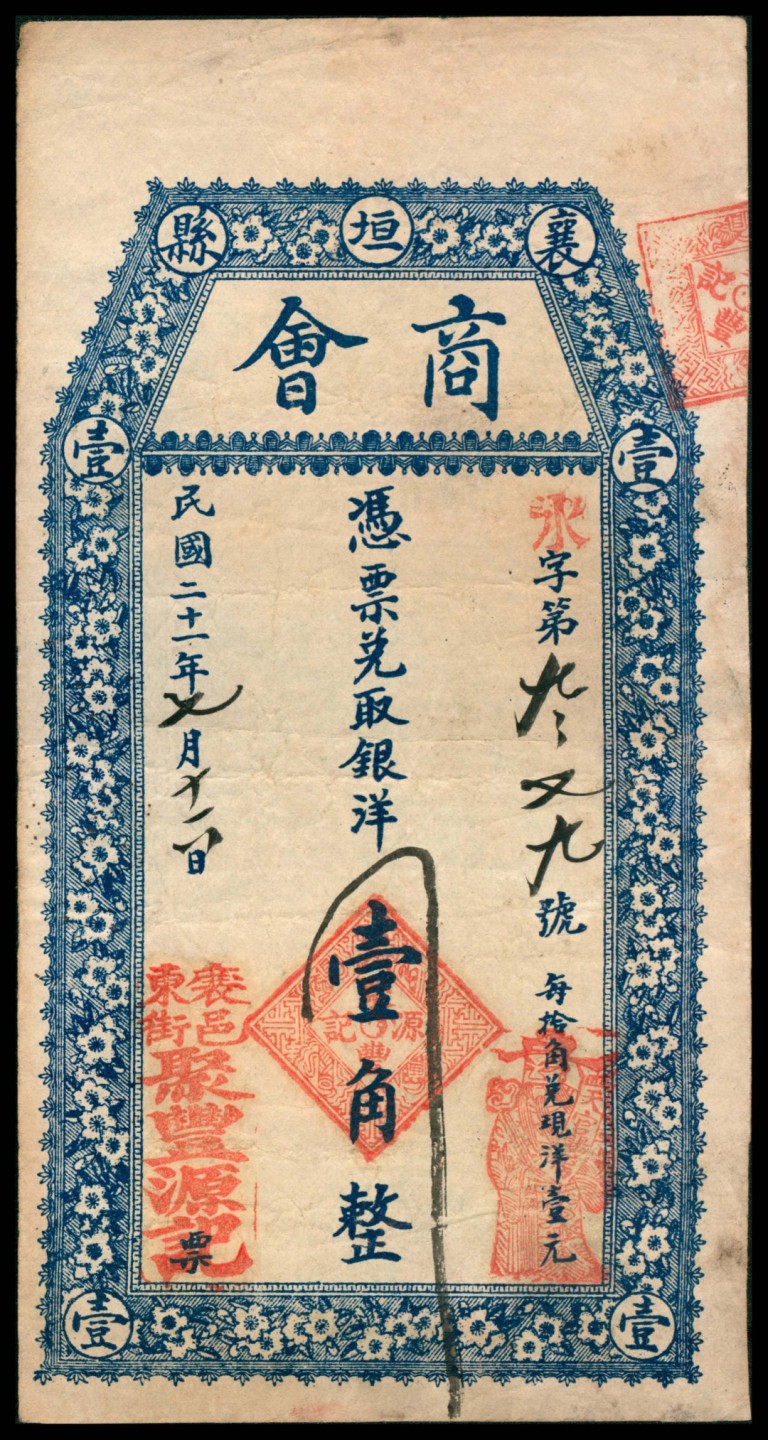 襄垣縣
商會
壹
壹
永字第九三又九號
每拾角兌現洋壹元
憑票兌取銀洋壹角整
源記
豐
民國二十一年七月十二日
襄邑
東街
聚豐源記
票
壹
壹